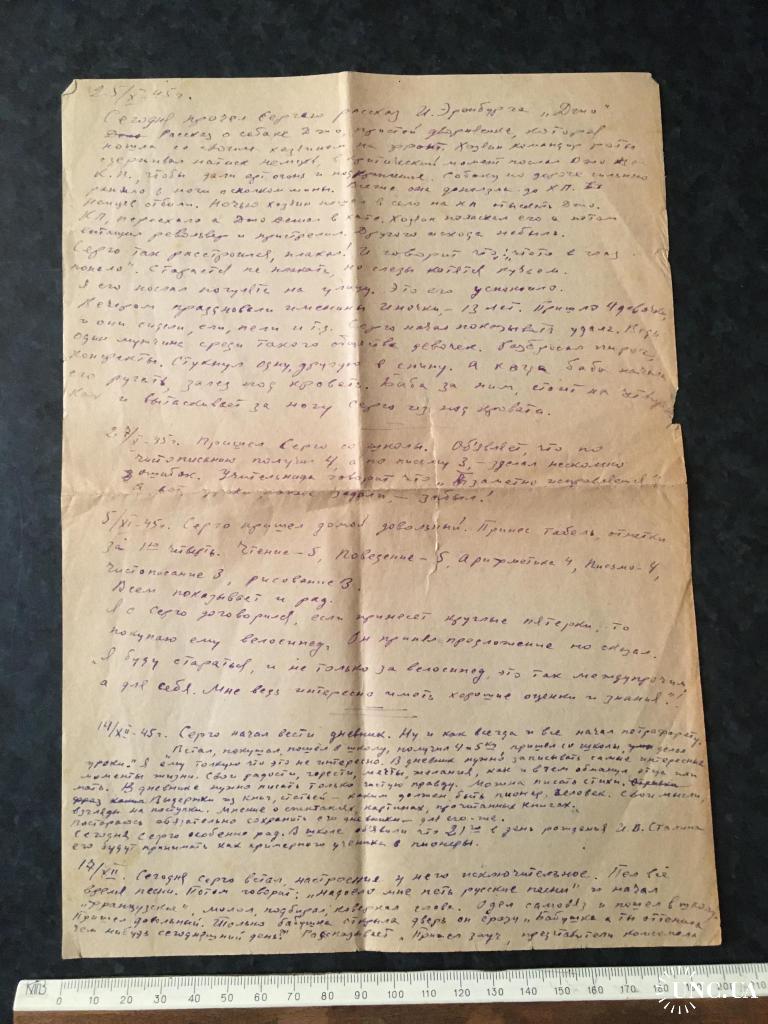 25/X-45г.
Сегодня прочел Сергею рассказ И. Эренбурга „Джо"
Рассказ о собаке Джо, простой дворняжке, которая
пошла со своим хозяином на фронт. Хозяин командир роты
сдерживал натиск немцев, в критический момент послал Джо на
К.П., чтобы дали арт огонь и подкрепление. Собаку по дороге сильно
ранило в ноги осколком мины. Все же она доползла до КП.
Немцев отбили. Ночью хозяин пошел в село на кп отыскать Джо.
КП, переехало а Джо лежал в хате. Хозяин поласкал его а потом
вытащил револьвер и пристрелил. Другого исхода небыло.
Серго так расстроился, плакал! И говорит что, „что-то в глаз
попало". Старается не плакать, но слезы котятся ручьем.
Я его послал погулять на улицу. Это его успокоило.
Вечером праздновали именины Иночки, - 13 лет. Пришло 4 девочки,
и они сидели, ели, пели и т.д. Серго начал показывать удаль. Ведь
один мужчина среди такого общества девочек. Разбросал пироги,
конфекты. Стукнул одну, другую в спину. А когда баба начала
его ругать, залез под кровать. Баба за ним, стоит на
и вытаскивает за ногу Серго из под кровати.
27/X-45г. Пришел Серго со школы. Объявляет, что по
чистописанию получил 4, а по письму 3, - зделал несколько
ошибок. Учительница говорит что „заметно исправляется".
А вот, уроки какие задали, - забыл!
5/XI-45г. Серго пришел домой довольный. Принес табель, отметки
за 1ую четверть. Чтение - 5, Поведение - 5, Арифметика 4, Письмо - 4,
чистописание 3, рисование 3.
Всем показывает и рад.
Я с Серго договорился, если принесет круглые пятерки, то
покупаю ему велосипед. Он принял предложение но сказал.
„Я буду стараться, и не только за велосипед, это так междупрочим
а для себя. Мне ведь интересно иметь хорошие оценки и знанья"!
14/XII-45г. Серго начал вести дневник. Ну и как всегда и все начал по трафарету.
„Встал, покушал, пошёл в школу, получил 4 и 5ку, пришел со школы, делал
уроки." Я ему толкую что это не интересно. В дневник нужно записывать самые интересные
моменты жизни. Свои радости, горести, мечты, желания, как и в чем обманул отца или
мать. В дневнике нужно писать только чистую правду. Можно писать стихи.
Выдержки из книг, статьей - каким должен быть пионер, человек. Свои мысли,
взгляды на поступки. Мнение о спектаклях, картинах, прочитанных книгах.
Постараюсь обязательно сохранить его дневники - для его-же.
Сегодня Серго особенно рад. В школе объявили что 21го в день рождения И.В. Сталина
его будут принимать как примерного ученика в пионеры.
17/XII. Сегодня Серго встал, настроение у него исключительное. Пел всё
время песни. Потом говорит: „надоело мне петь русские песни" и начал
„французские", молол, подбирал, коверкал слова. Одел сам и пошел в школу.
Пришел довольный. Только бабушка открыла дверь он сразу „Бабушка а ты отметила
чем нибудь сегодняшний день?" Рассказывает „Пришел завуч, представители комсомола
КПВ 0 10 20 30 40 50 60 70 80 90 100 110 120 130 140 150 160 170 180 190 200 210
UNC.UA